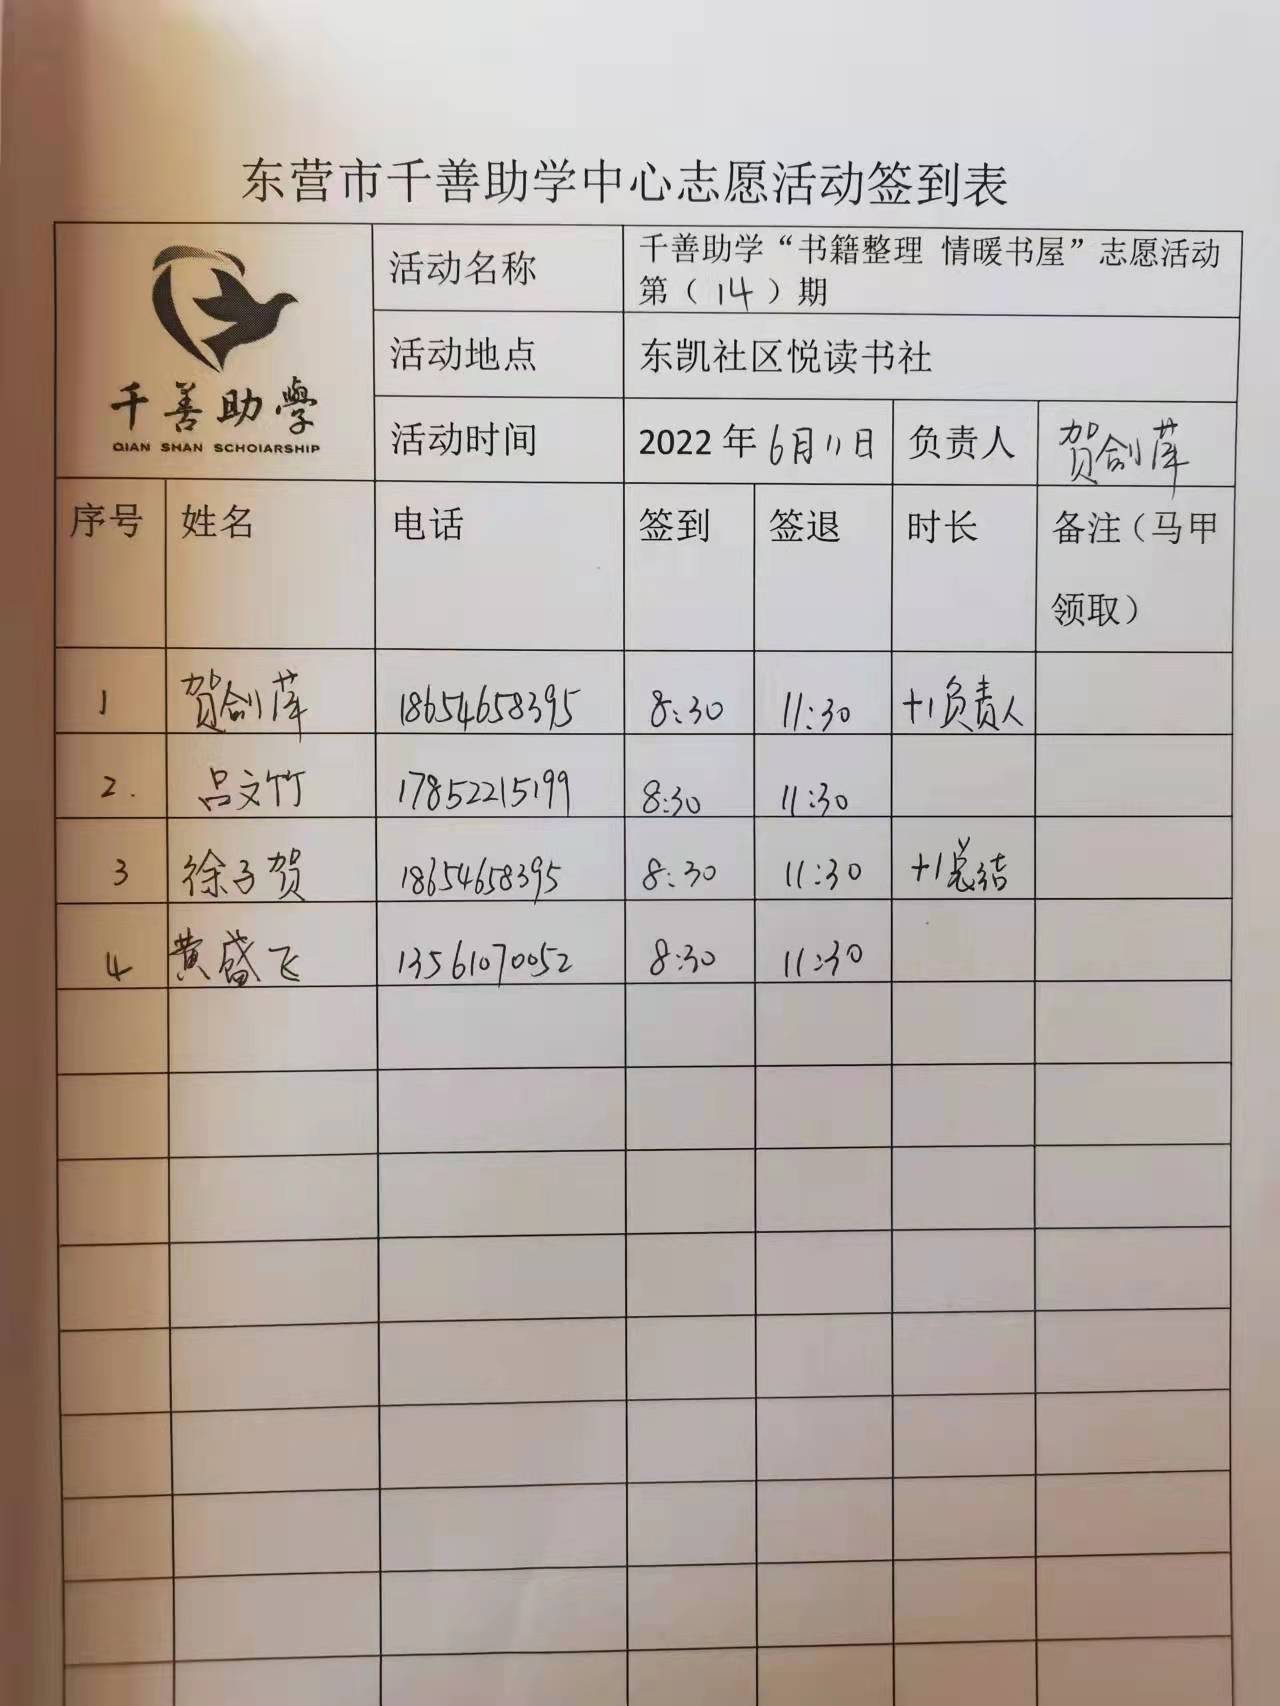 东营市千善助学中心志愿活动签到表
千善助學
QIAN SHAN SCHOIARSHIP
活动名称 千善助学“书籍整理 情暖书屋”志愿活动
第（14）期
活动地点 东凯社区悦读书社
活动时间 2022年6月11日 负责人 贺剑萍
序号 姓名 电话 签到 签退 时长 备注（马甲
领取）
1 贺剑萍 18654658395 8:30 11:30 +1负责人
2. 吕文竹 17852215199 8:30 11:30
3 徐子贺 18654658395 8:30 11:30 +1总结
4 黄盛飞 13561070052 8:30 11:30